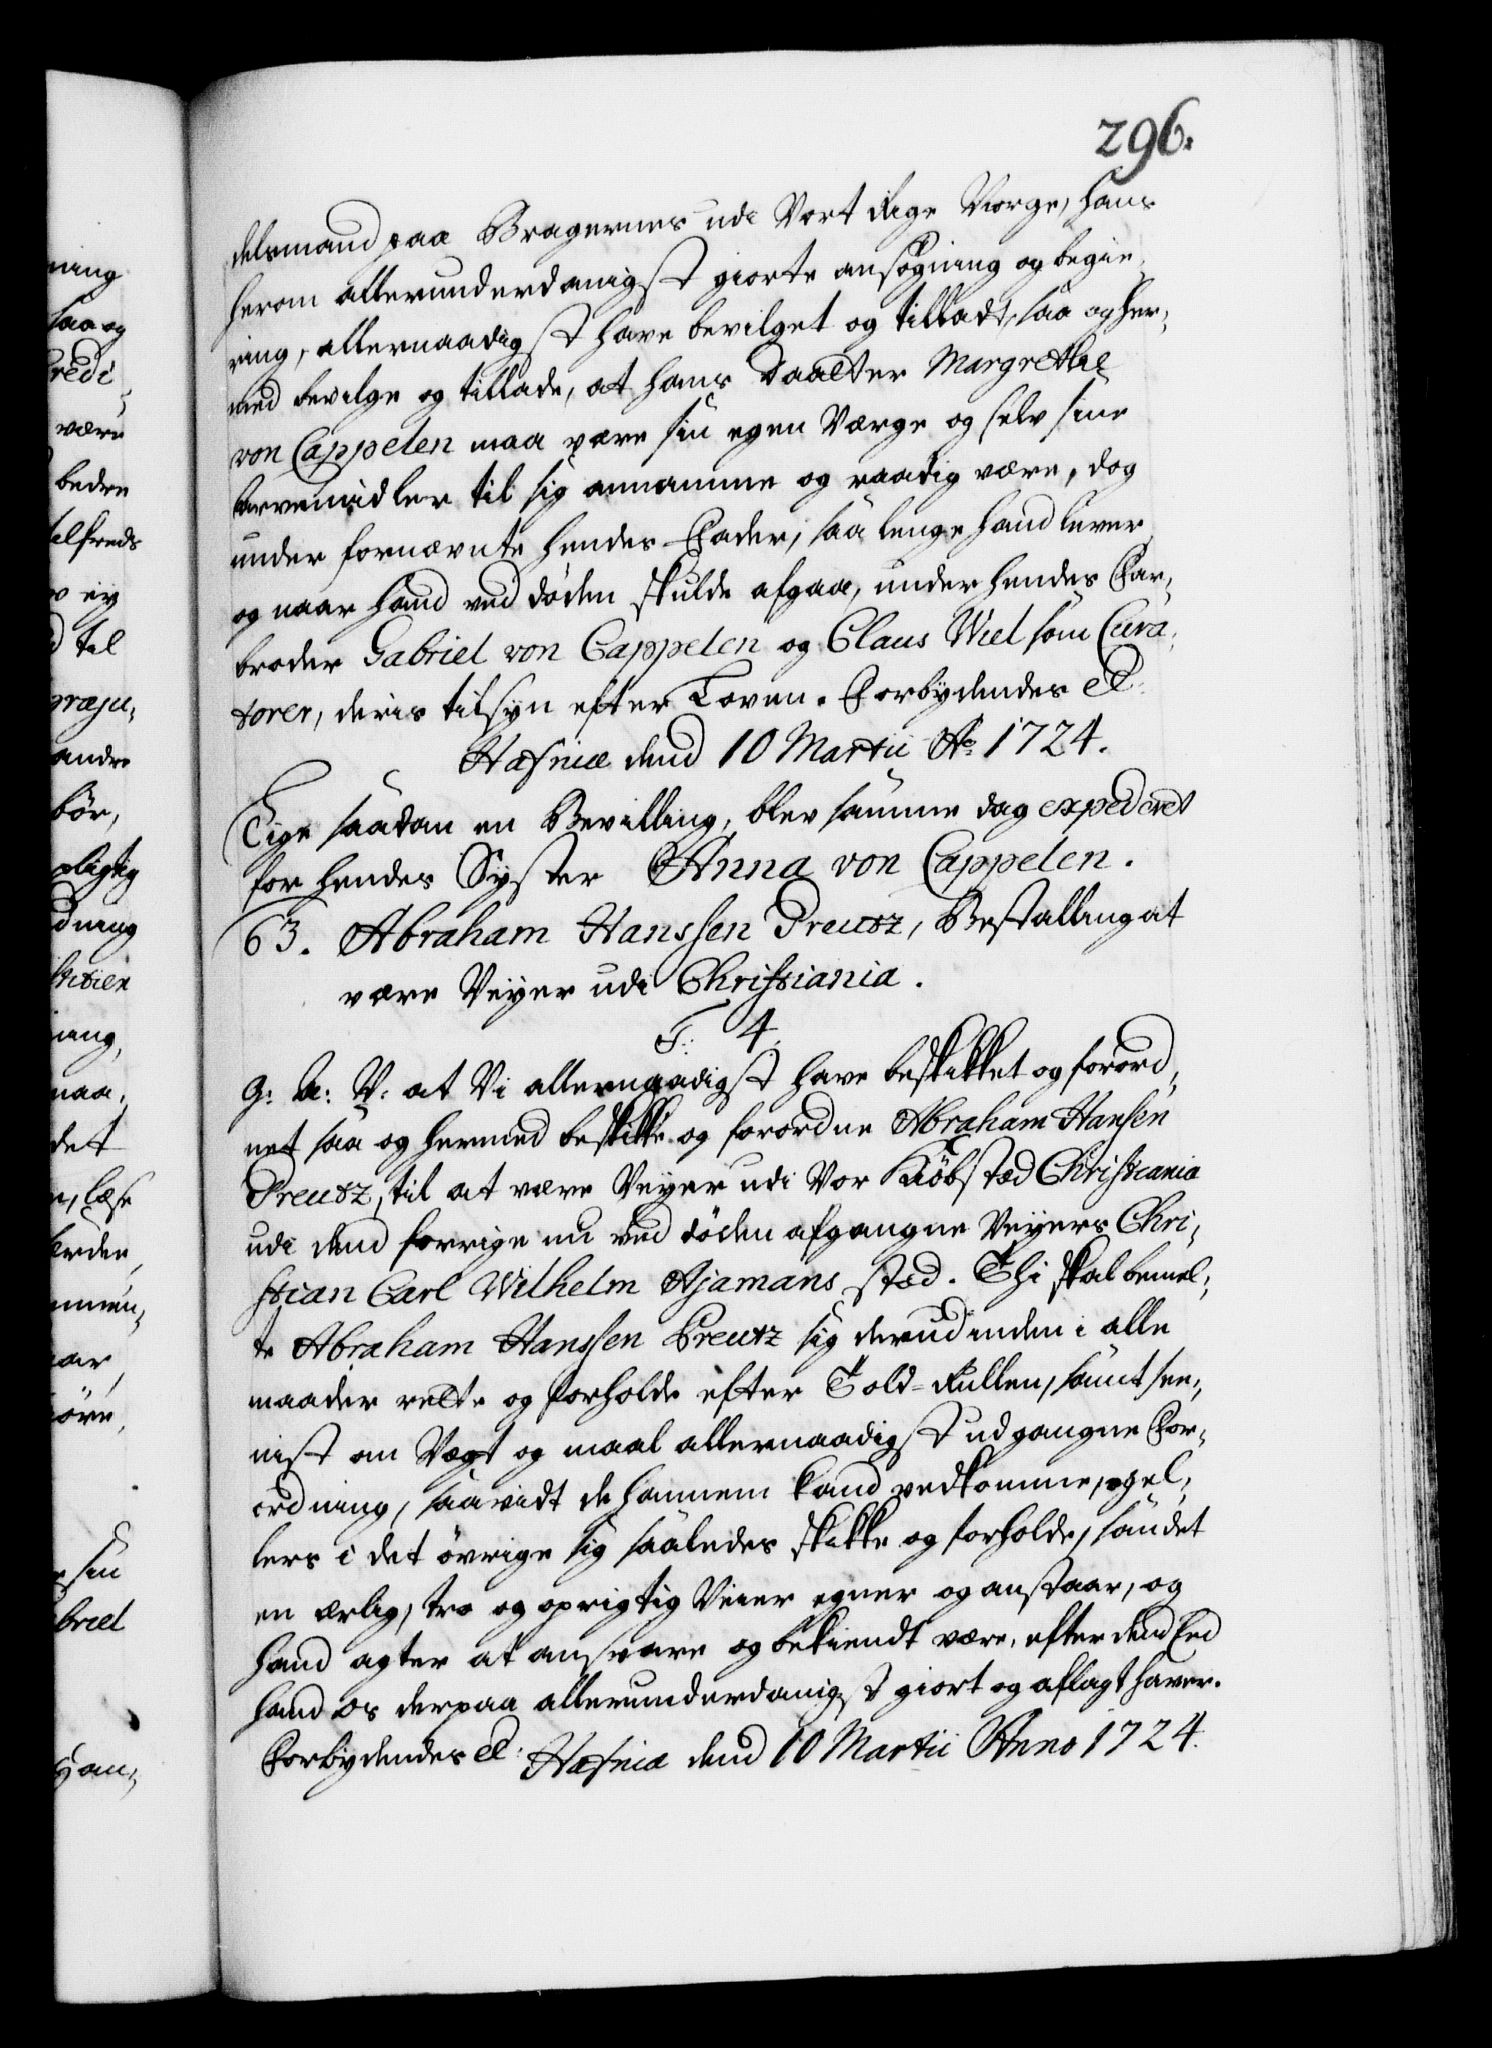 296.
delsmand paa Bragernes udi Vort Rige Norge, hans
herom allerunderdanigst giorte ansøgning og begie,
ring, allernaadigst have bevilget og tilladt, saa og her,
med bevilge og tillade, at hans Daatter Margrethe
von Cappelen maa være sin egen Værge og selv sine
arvemidler til sig annamme og raadig være, dog
under fornævnte hendes Fader, saa lenge hand lever
og naar hand ved døden skulde afgaa, under hendes Far,
broder Gabriel von Cappelen og Claus Wiel som Cura,
torer, deris tilsyn efter Loven. Forbydendes etc:
Hafniæ dend 10 Martii Ao 1724.
Lige saadan en Bevilling, blev samme dag expederet
for hendes Syster Anna von Cappelen.
63. Abraham Hanssen Preutz, Bestalling at
være Veyer udi Christiania.
F: 4.
G: A: V: at Vi allernaadigst have beskikket og forord,
net saa og hermed beskikke og forordne Abraham Hansen
Preutz, til at være Veyer udi Vor Kiöbsted Christiania
udi dend forrige nu ved døden afgangne Veyers Chri,
stian Carl Wilhelm Ajamans sted. Thi skal bemel,
te Abraham Hanssen Preutz sig derudinden i alle
maader rette og forholde efter Told-Rullen, samt see,
nist om Vegt og maal allernaadigst udgangne For,
ordning, saavidt de hannem kand vedkomme, og el,
lers i det övrige sig saaledes skikke og forholde, som det
en ærlig, tro og oprigtig Veier egner og anstaar, og
hand agter at ansvare og bekiendt være, efter dend Eed
hand os derpaa allerunderdanigst giort og aflagt haver.
Forbydendes etc: Hafniæ dend 10 Martii Anno 1724.